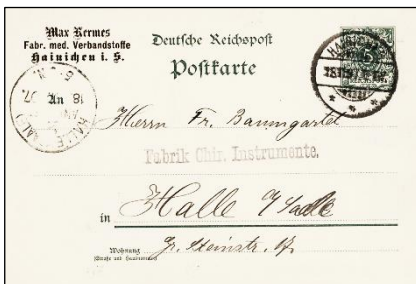 Max Kermes
Fabr. med. Verbandstoffe
Hainichen i. S.
Deutsche Reichspost
Postkarte
HAINICHEN
5
HALLE
18
97.
An
Herrn Fr. Baumgartel
Fabrik Chir. Instrumente.
in Halle a/Saale
Wohnung
(Straße und Hausnummer)
Gr. Steinstr.